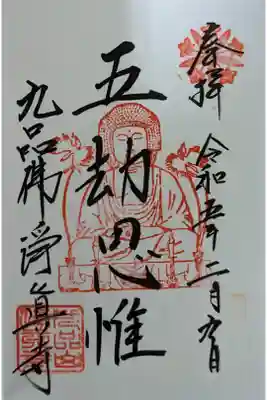 奉拝 令和五年二月九日
五劫思惟
九品佛 淨真寺